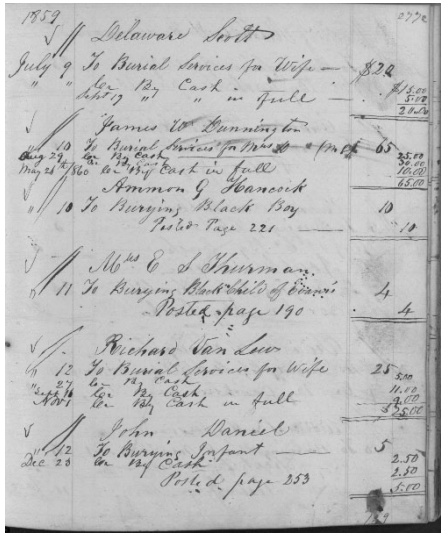 1859
Delaware Scott
July 9 To Burial Services for Wife — $20
Cr By Cash $15.00
Sept 17 " " in full — 5.00
20.00
James W Dunnington
" 10 To Burial Services for Mrs 65
Aug 29 Cr By Cash 25.00
30.00
May 28th 1860 Cr By Cash in full 10.00
65.00
Ammon G Hancock
" 10 To Burying Black Boy 10
Posted Page 221 — 10
Mrs E S Thurman
" 11 To Burying Black Child of 4
Posted page 190 4
Richard Van Lew
" 12 To Burial Services for Wife 25
" 27 Cr By Cash 5.00
Sept 16 Cr By Cash 11.00
Nov 1 Cr By Cash in full 9.00
$25.00
John Daniel
" 12 To Burying Infant — 5
2.50
Dec 23 Cr By Cash 2.50
Posted page 253 5.00
189